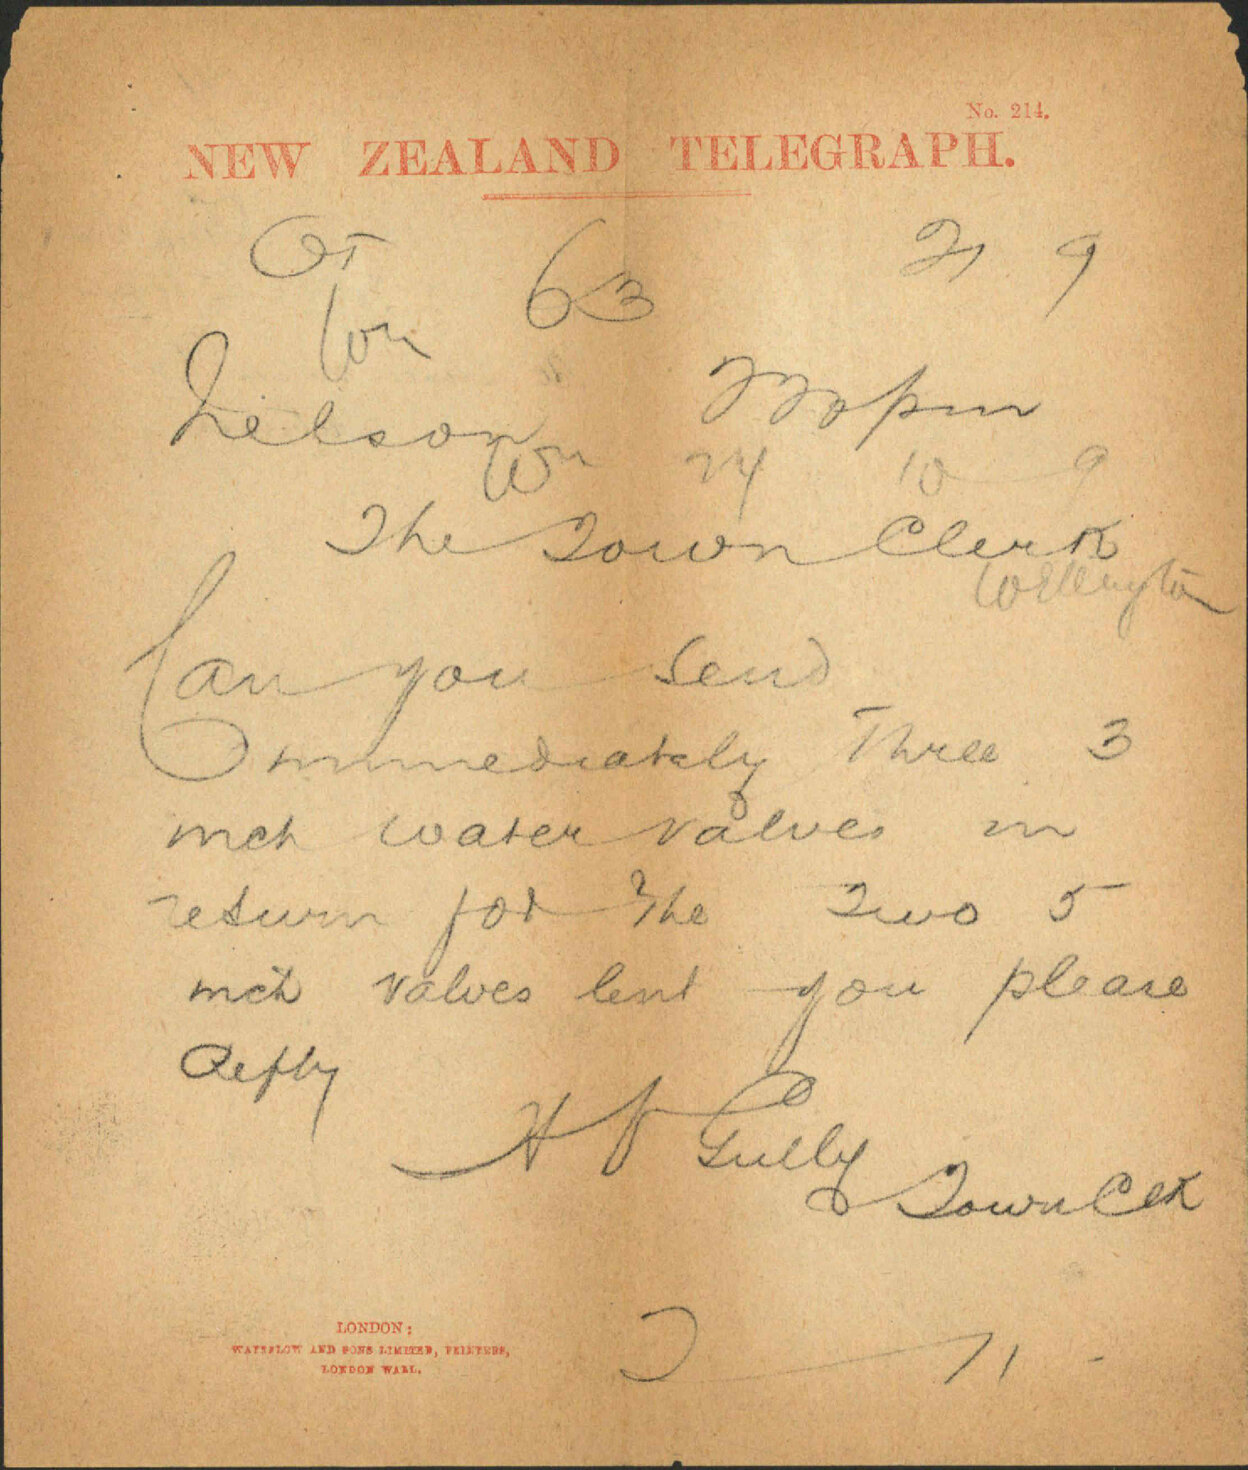 No. 214.
NEW ZEALAND TELEGRAPH.
OT 63 21 9
Wn
Nelson 330pm
Wn 24 10 9
The Town Clerk
Wellington
Can you send
immediately Three 3
inch water valves in
return for The Two 5
inch valves lent you please
Reply
H V Gully
Town Clk
LONDON;
WATERLOW AND SONS LIMITED, PRINTERS,
LONDON WALL.